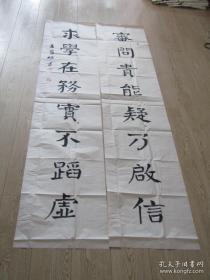 審問貴能疑乃啟信
求學在務實不蹈虛
孔夫子旧书网